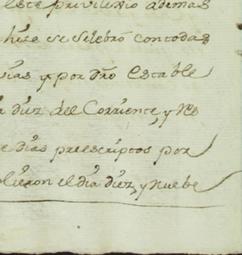 este privilexio ademas
hize se selebró con todas
dias y por dño estable
diez del Corriente, y Nos
e dias preescriptos por
plieron el dia diez, y nuebe